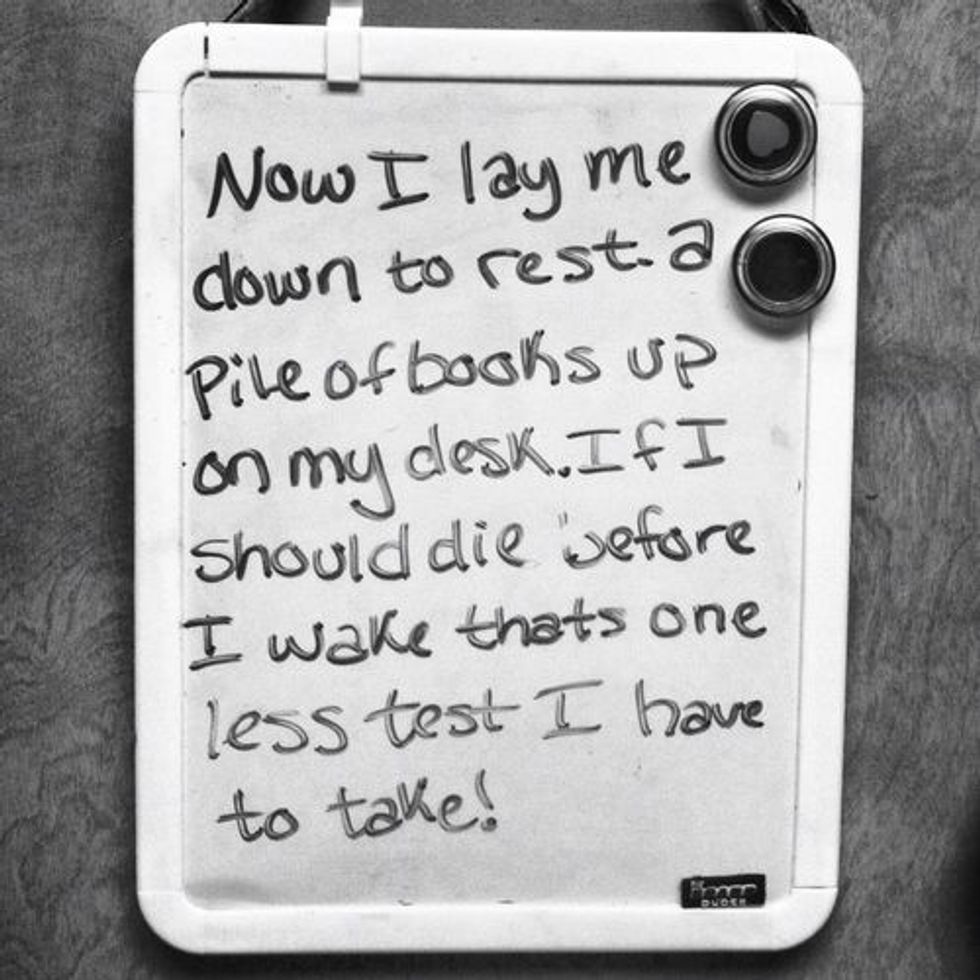 Now I lay me
down to rest. a
pile of books up
on my desk. If I
should die before
I wake thats one
less test I have
to take!
DUDES